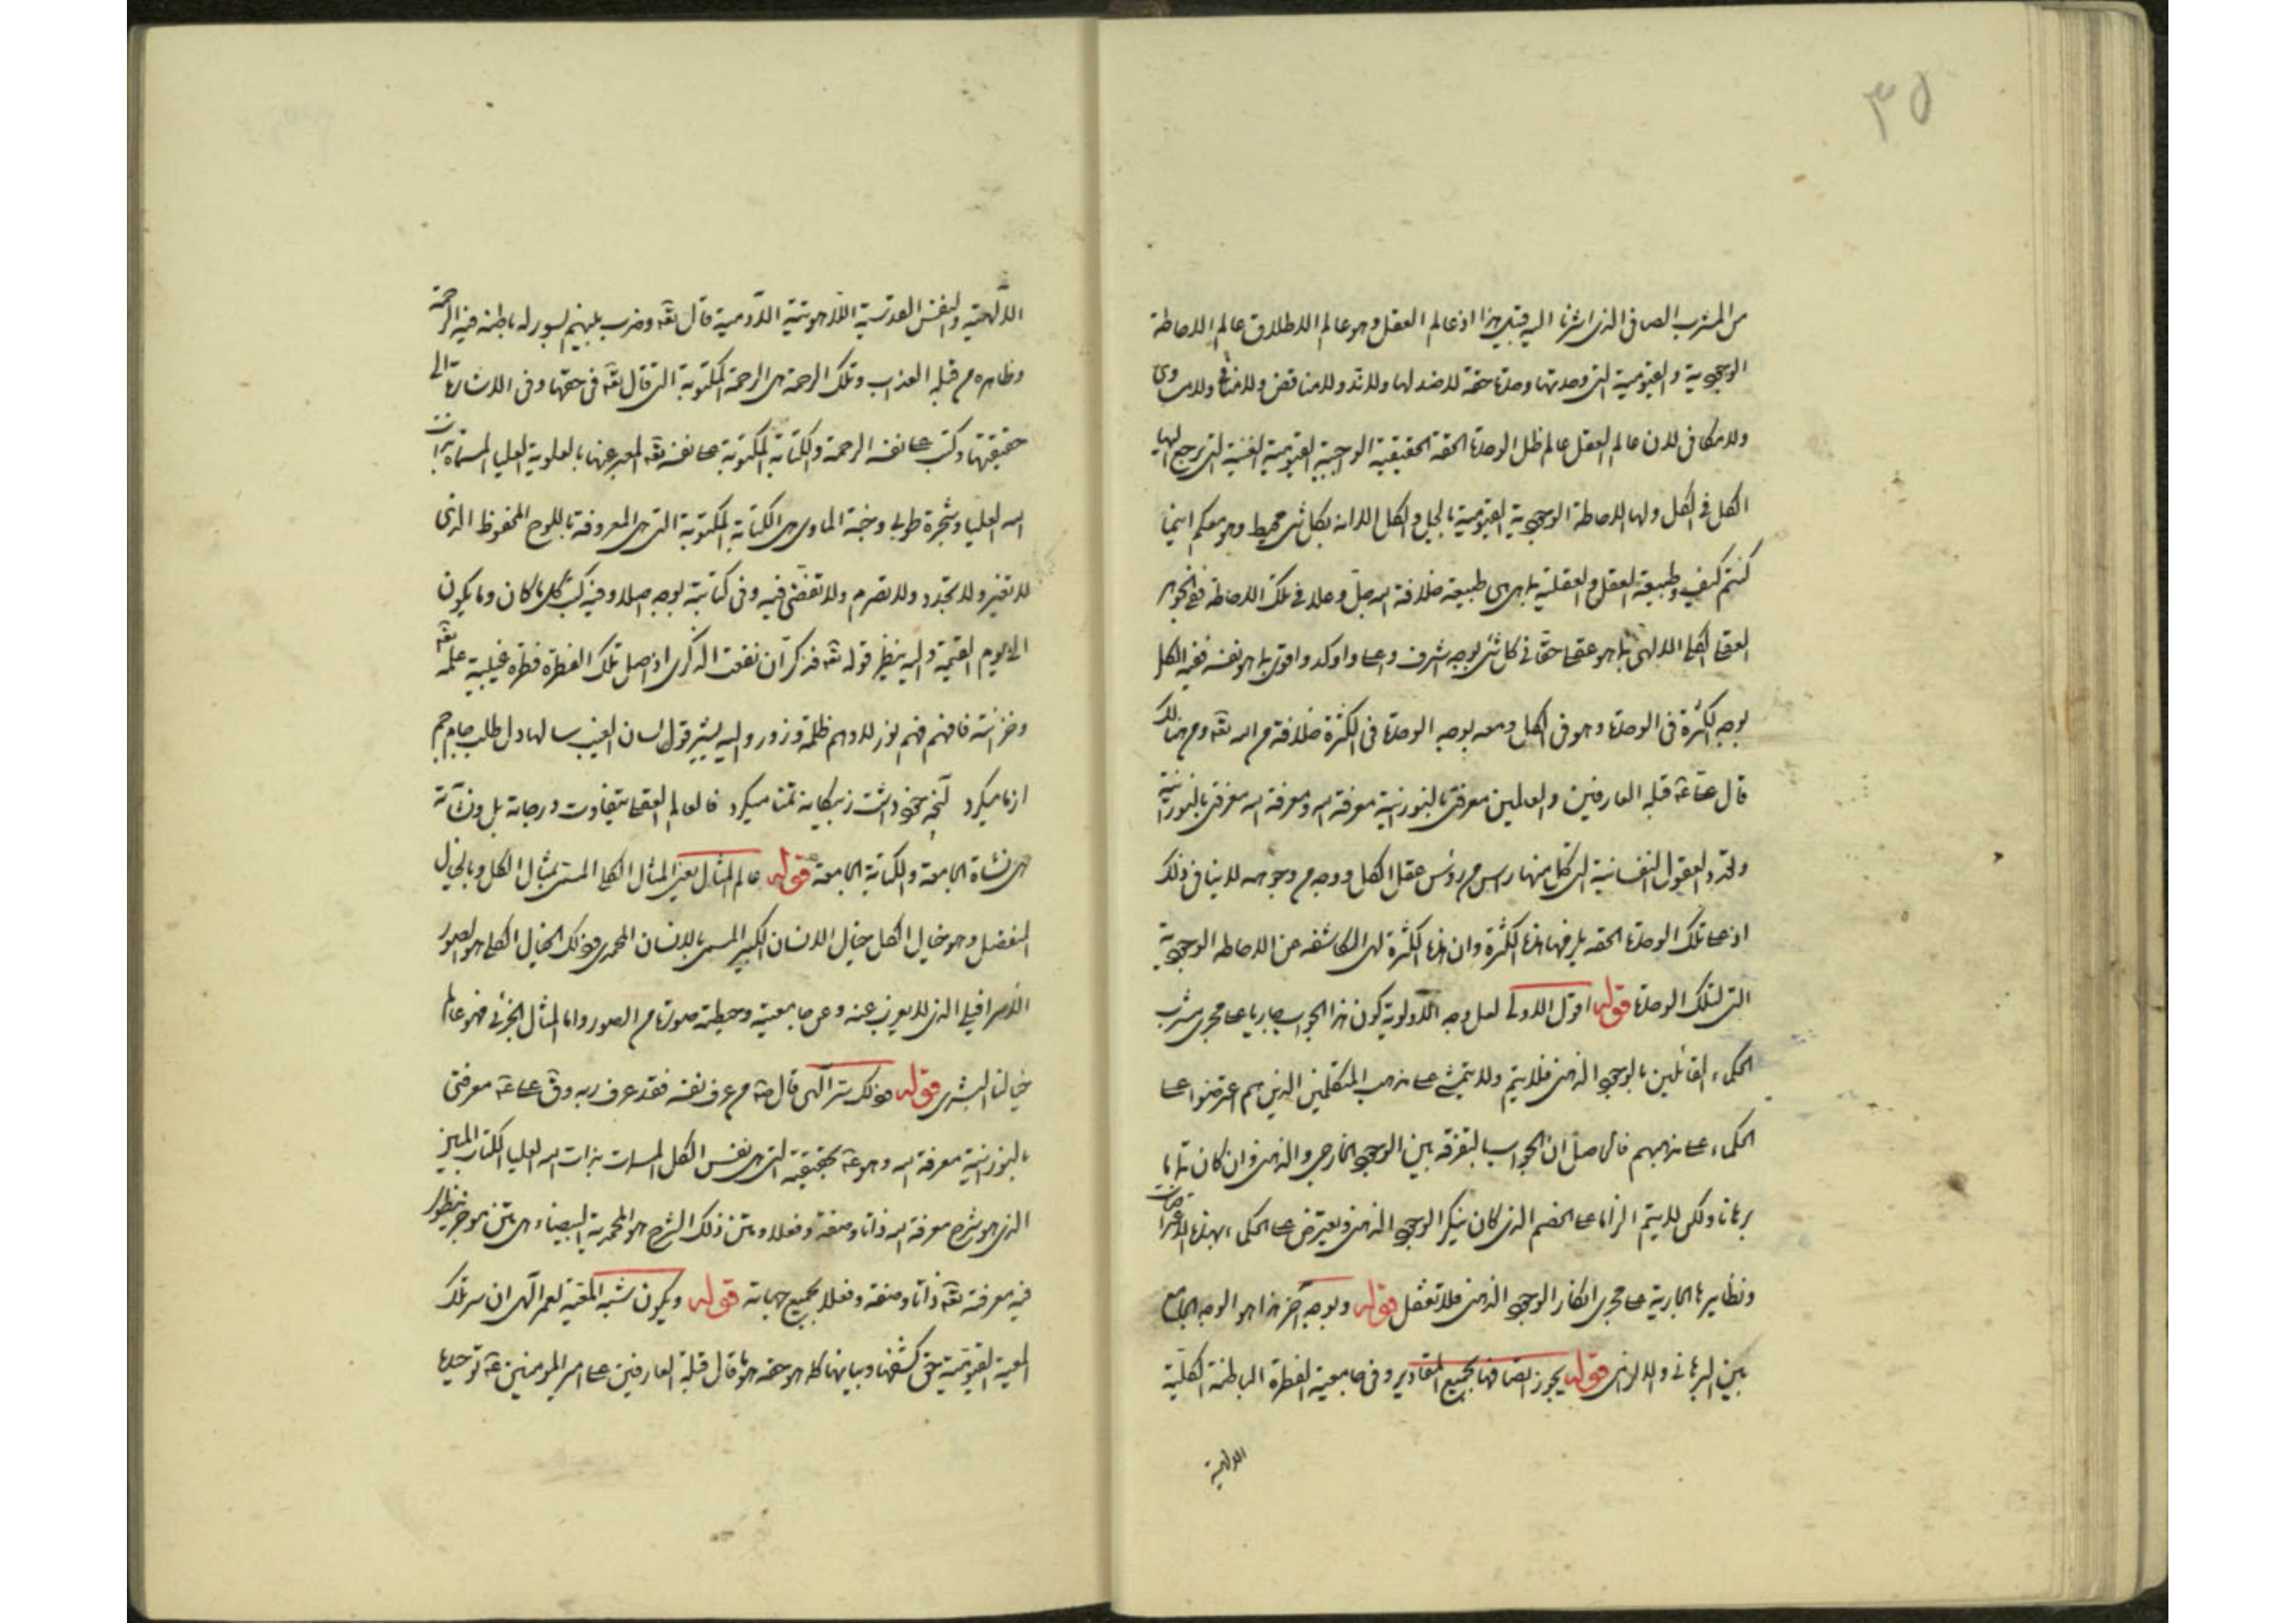 ٣٥
من المشرب الصافي الذي اشرنا اليه قبيل هذا اذ عالم العقل وهو عالم الاطلاق عالم الاحاطة
الوجوبية والقيومية التي وحدتها وحدة حقة لا ضد لها ولا ند ولا مناقض ولا منافي ولا مساوي
ولا مكافي لان عالم العقل عالم ظل الوحدة الحقة الحقيقية الوجبية القيومية الغنية التي يرجع اليها
الكل في الكل ولها الاحاطة الوجوبية القيومية بالجل والكل الا انه بكل شئ محيط وهو معكم اينما
كنتم كيف وطبيعة العقل والعقلية بما هي هي طبيعة خلافة الله جل وعلا في تلك الاحاطة فالجوهر
العقلي الكلي الالهي بما هو عقلي حق في كل شئ بوجه اشرف واعلى واوكد واقوى بما هو نفسه ففيه الكل
بوجه الكثرة في الوحدة وهو في الكل ومعه بوجه الوحدة في الكثرة خلافة من الله تعه ومن هنالك
قال علي ع قبلة العارفين والعالمين معرفتي بالنورانية معرفة الله ومعرفة الله معرفتي بالنورانية
وتعدد العقول النفسانية التي كل منها راس من رؤس عقل الكل ووجه من وجوهه لا ينافي ذلك
اذ على تلك الوحدة الحقه يلزمها هذه الكثرة وان هذه الكثرة لهى الكاشفه عن الاحاطه الوجوبية
التي لتلك الوحدة قوله اقول الاولى لعل وجه الاولوية كون هذا الجواب جاريا على مجرى مشرب
الحكماء القائلين بالوجود الذهني فلا يتم ولا يتمشى على مذهب المتكلمين الذين هم اعترضوا على
الحكماء على مذهبهم فالحاصل ان الجواب بالتفرقه بين الوجود الخارجي والذهني وان كان تاما
برهانا ولكن لا يتم الزاما على الخصم الذي كان ينكر الوجود الذهني ويعترض على الحكماء بهذه الاعتراضات
ونظايرها الجارية على مجرى انكار الوجود الذهني فلا تغفل قوله وبوجه آخر هذا هو الوجه الجامع
بين البرهاني والالزامي قوله يجوز اتصافها بجميع المقادير وفي جامعية الفطرة الباطنة الكلية
الالهية
الالهية والنفس القدسية اللاهوتية الآدمية قال تعه وضرب بينهم بسور له باطنه فيه الرحمة
وظاهره من قبله العذاب وتلك الرحمة هي الرحمة المكتوبة التي قال تعه في حقها وفي الاشارة الى
حقيقتها وكتب على نفسه الرحمة والكتابة المكتوبة على نفسه تعه المعبر عنها بالعلوية العليا المسماة بذات
الله العليا وشجرة طوبى وجنة الماوى هي الكتابة المكتوبة التي هي المعروفة باللوح المحفوظ الذي
لا تغير ولا تجدد ولا تصرم ولا تقضي فيه وفي كتابيته بوجه اصلا وفيه كتب كل ما كان وما يكون
الى يوم القيمة واليه ينظر قوله تعه فذكر ان نفعت الذكرى اذ اصل تلك الفطرة فطرة غيبية علمه تعه
وخزانته فافهم فهم نور لا وهم ظلمة وزور واليه يشير قول لسان الغيب سالها دل طلب جام جم
از ما ميكرد آنچه خود داشت ز بيگانه تمنا ميكرد فالعالم العقلي بتفاوت درجاته بل ونشآته
هي نشاة الجامعة والكتابة الجامعة قوله عالم المثال يعني المثال الكلي المسمى بمثال الكل وبالخيال
المنفصل وهو خيال الكل خيال الانسان الكبير المسمى بالانسان المحمدي وذلك الخيال الكلي هو الصور
الاسرافيلي الذي لا يعزب عنه وعن جامعيته وحيطته صورة من الصور واما المثال الجزئي فهو عالم
خيالنا البشري قوله وذلك سر الهي قال ص من عرف نفسه فقد عرف ربه وق علي ع معرفتي
بالنورانية معرفة الله وهو ع بحقيقته التي هي نفس الكل المسمات بذات الله العليا الكتاب المبين
الذي هو شرح معرفة الله ذاتا وصفة وفعلا ومتن ذلك الشرح هو المحمدية البيضاء هي متن موجز ينطوى
فيه معرفته تعه ذاتا وصفة وفعلا بجميع جهاته قوله ويكون شبه المعية لعمر الهي ان سر تلك
المعية القيومية حق كشفها وبيانها كما هو حقه هو ما قال قبلة العارفين علي امير المومنين ع توحيده